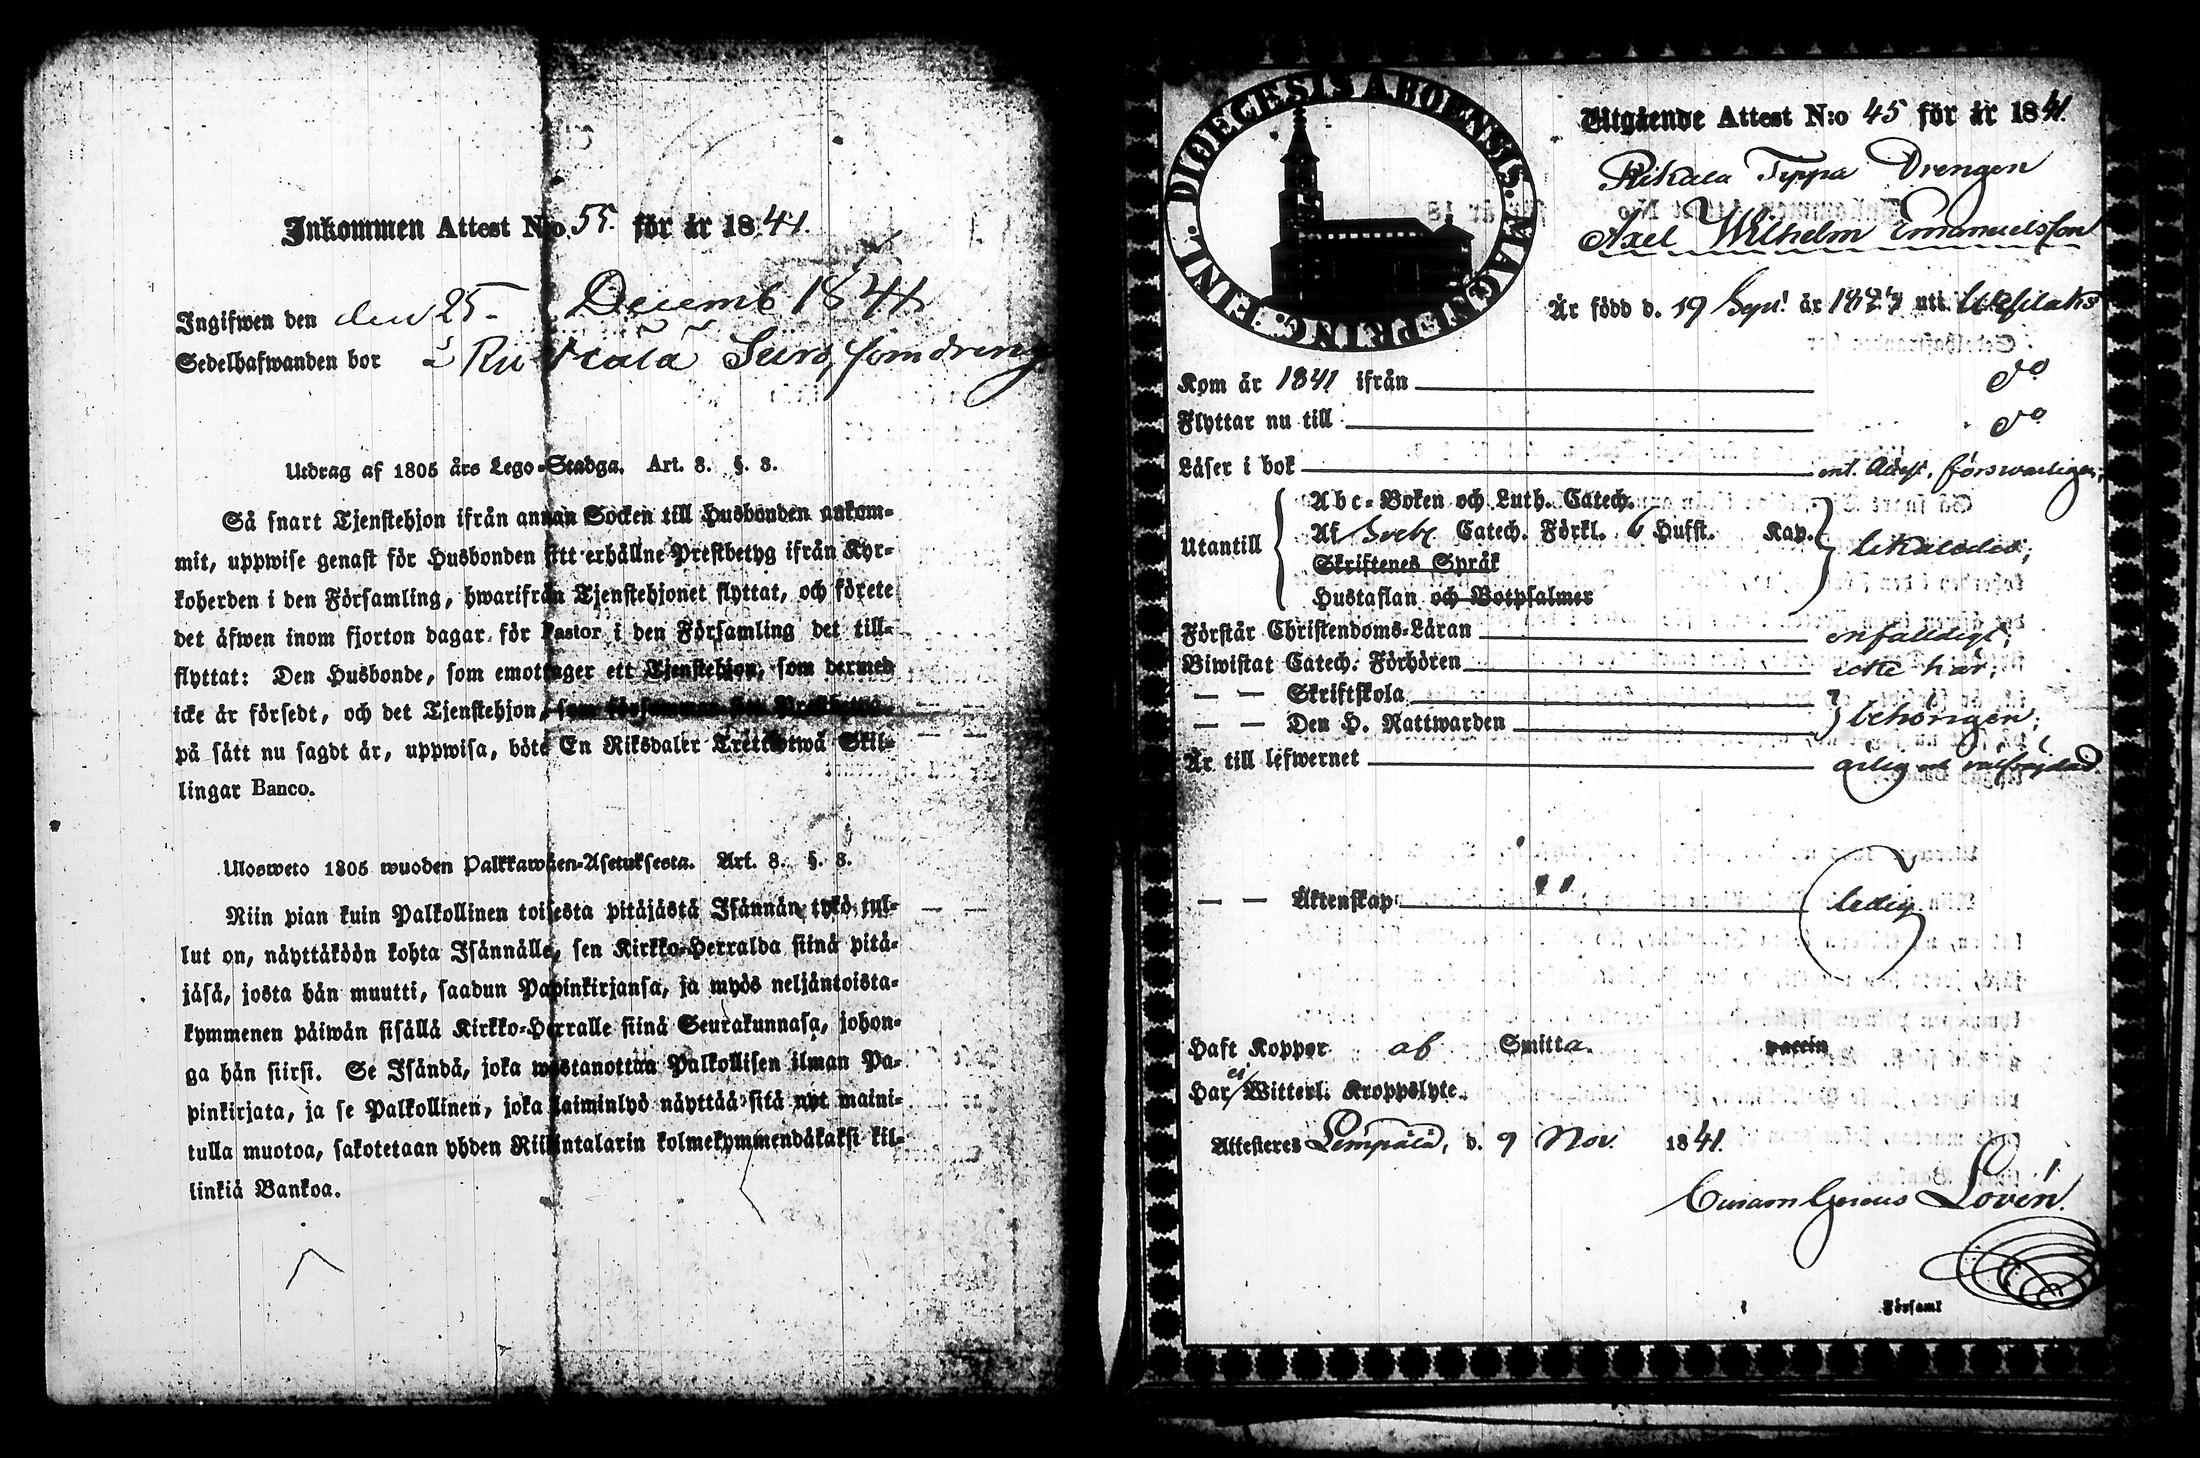 Inkommen Attest N:o 55. för år 1841.
Ingifwen den den 25. Decemb 1841
Sedelhafwanden bor som dreng
Utdrag af 1805 års Lego-Stadga. Art. 8. §. 8.
Så snart Tjenstehjon ifrån annan Socken till Husbonden ankom-
mit, uppwise genast för Husbonden sitt erhållne Prestbetyg ifrån Kyr-
koherden i den Församling, hwarifrån Tjenstehjonet flyttat, och förete
det äfwen inom fjorton dagar för Pastor i den Församling det till-
flyttat: Den Husbonde, som emottager ett Tjenstehjon, som dermed
icke är försedt, och det Tjenstehjon, som försummar sitt Prestbetyg,
på sätt nu sagdt är, uppwisa, böte En Riksdaler Trettiotwå Skil-
lingar Banco.
Ulosweto 1805 wuoden Palkkawäen-Asetuksesta. Art. 8. §. 8.
Niin pian kuin Palkollinen toisesta pitäjästä Isännän tykö tul-
lut on, näyttäköön kohta Isännälle, sen Kirkko-Herralda siinä pitä-
jäsä, josta hän muutti, saadun Papinkirjansa, ja myös neljäntoista-
kymmenen päiwän sisällä Kirkko-Herralle siinä Seurakunnasa, johon-
ga hän siirsi. Se Isändä, joka wastanottaa Palkollisen ilman Pa-
pinkirjata, ja se Palkollinen, joka laiminlyö näyttää sitä nyt maini-
tulla muotoa, sakotetaan yhden Riikintalarin kolmekymmendäkaksi kil-
linkiä Bankoa.
DIOECESIS ABOENSIS. MAGN. PRINC. FINL.
Utgående Attest N:o 45 för år 1841.
Rikala Typpa Drengen
Axel Wilhelm Emanuelsson
Är född d. 19 Sept. år uti
Kom år 1841 ifrån do
Flyttar nu till do
Läser i bok enl. Attest, förswarligen;
Utantill
Abc-Boken och Luth. Catech.
Af Sveb. Catech. Förkl. 6 Hufst. Kap.
Skriftenes Språk
Hustaflan och Botpsalmer
likaledes;
Förstår Christendoms-Läran enfaldigt;
Biwistat Catech. Förhören icke här;
— — Skriftskola
— — Den H. Nattwarden behörigen;
Är till lefwernet ärlig och välfrejdad.
— — Äktenskap ledig
Haft Koppor af Smitta. vaccin
Har ej Witterl. Kroppslyte.
Attesteres Lempälä, d. 9 Nov. 1841.
Curam Gerens Lovén.
Församl